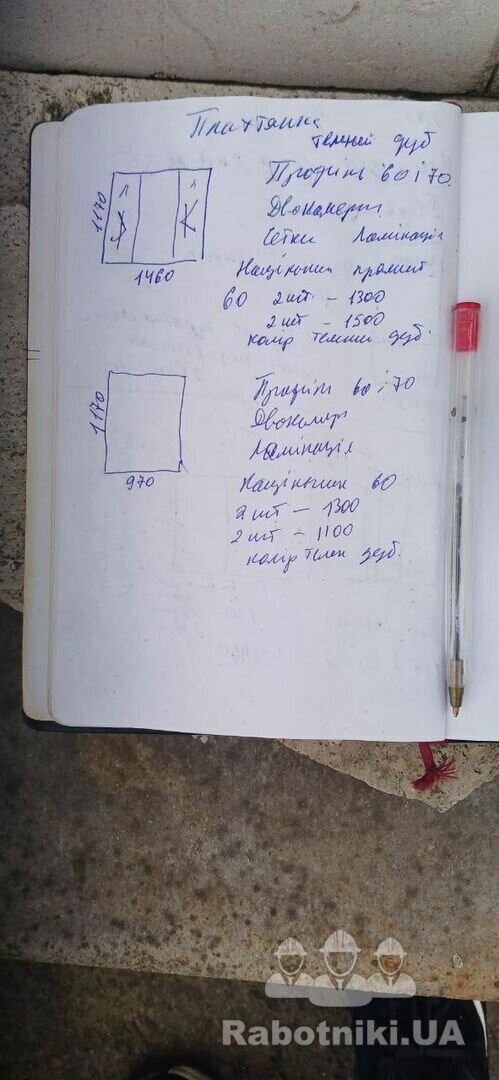 Плахтянка
темний дуб
1170
1460
Профіль 60 і 70
Двокамерн
Сетки Ламінація
Нащільник прямий
60 2 шт – 1300
2 шт – 1500
колір темний дуб
1170
970
Профіль 60 і 70
Двокамер
Ламінація
Нащільник 60
2 шт – 1300
2 шт – 1100
колір темн дуб.
Rabotniki.UA